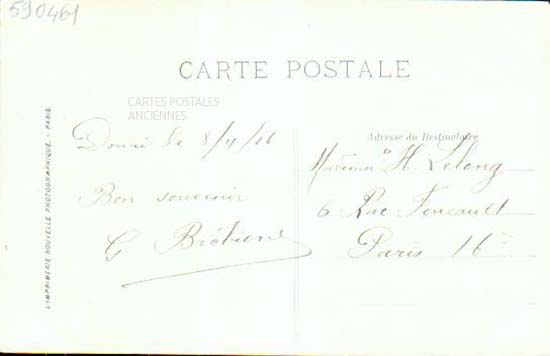 590461
CARTE POSTALE
CARTES POSTALES
ANCIENNES
L'IMPRIMERIE NOUVELLE PHOTOGRAPHIQUE. - PARIS
Adresse du Destinataire
le 8/4/16
Bon souvenir
G
H. Lelong
6 Rue Foucault
Paris 16